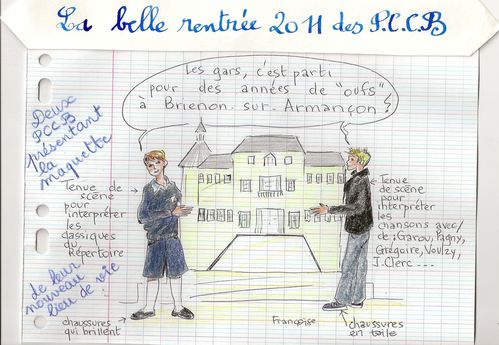 La belle rentrée 2011 des P.C.C.B
Les gars, c'est parti
pour des années de "oufs"
à Brienon-sur-Armançon!
Deux
PCCB
présentant
la
maquette
de leur
nouveau
lieu de vie!
Tenue de
scène
pour
interpréter
les
classiques
du
Répertoire
Tenue
de scène
pour
interpréter
les
chansons avec/
de : Garou, Pagny,
Grégoire, Voulzy,
J. Clerc ....
chaussures
qui brillent
Françoise
chaussures
en toile